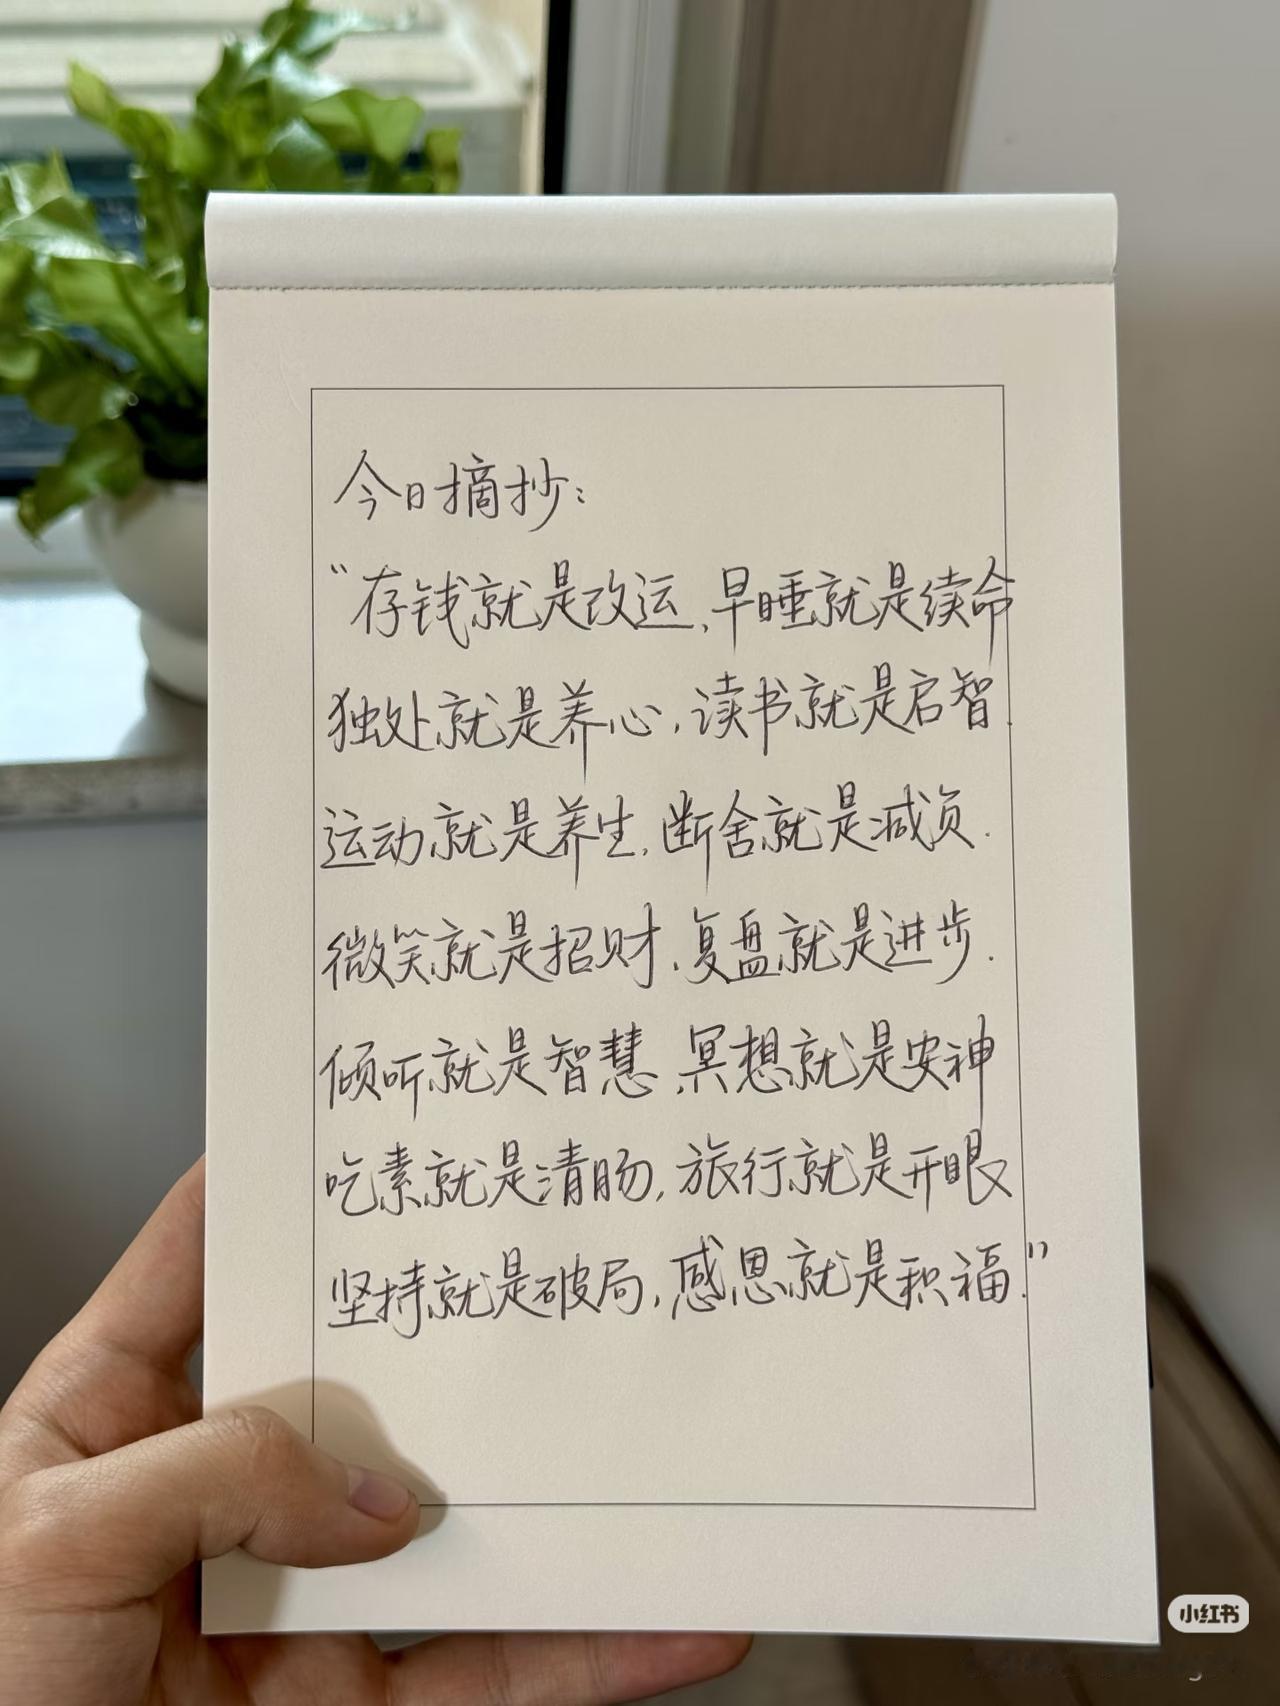 今日摘抄：
“存钱就是改运，早睡就是续命
独处就是养心，读书就是启智.
运动就是养生，断舍就是减负.
微笑就是招财，复盘就是进步.
倾听就是智慧，冥想就是安神
吃素就是清肠，旅行就是开眼
坚持就是破局，感恩就是积福.”
小红书